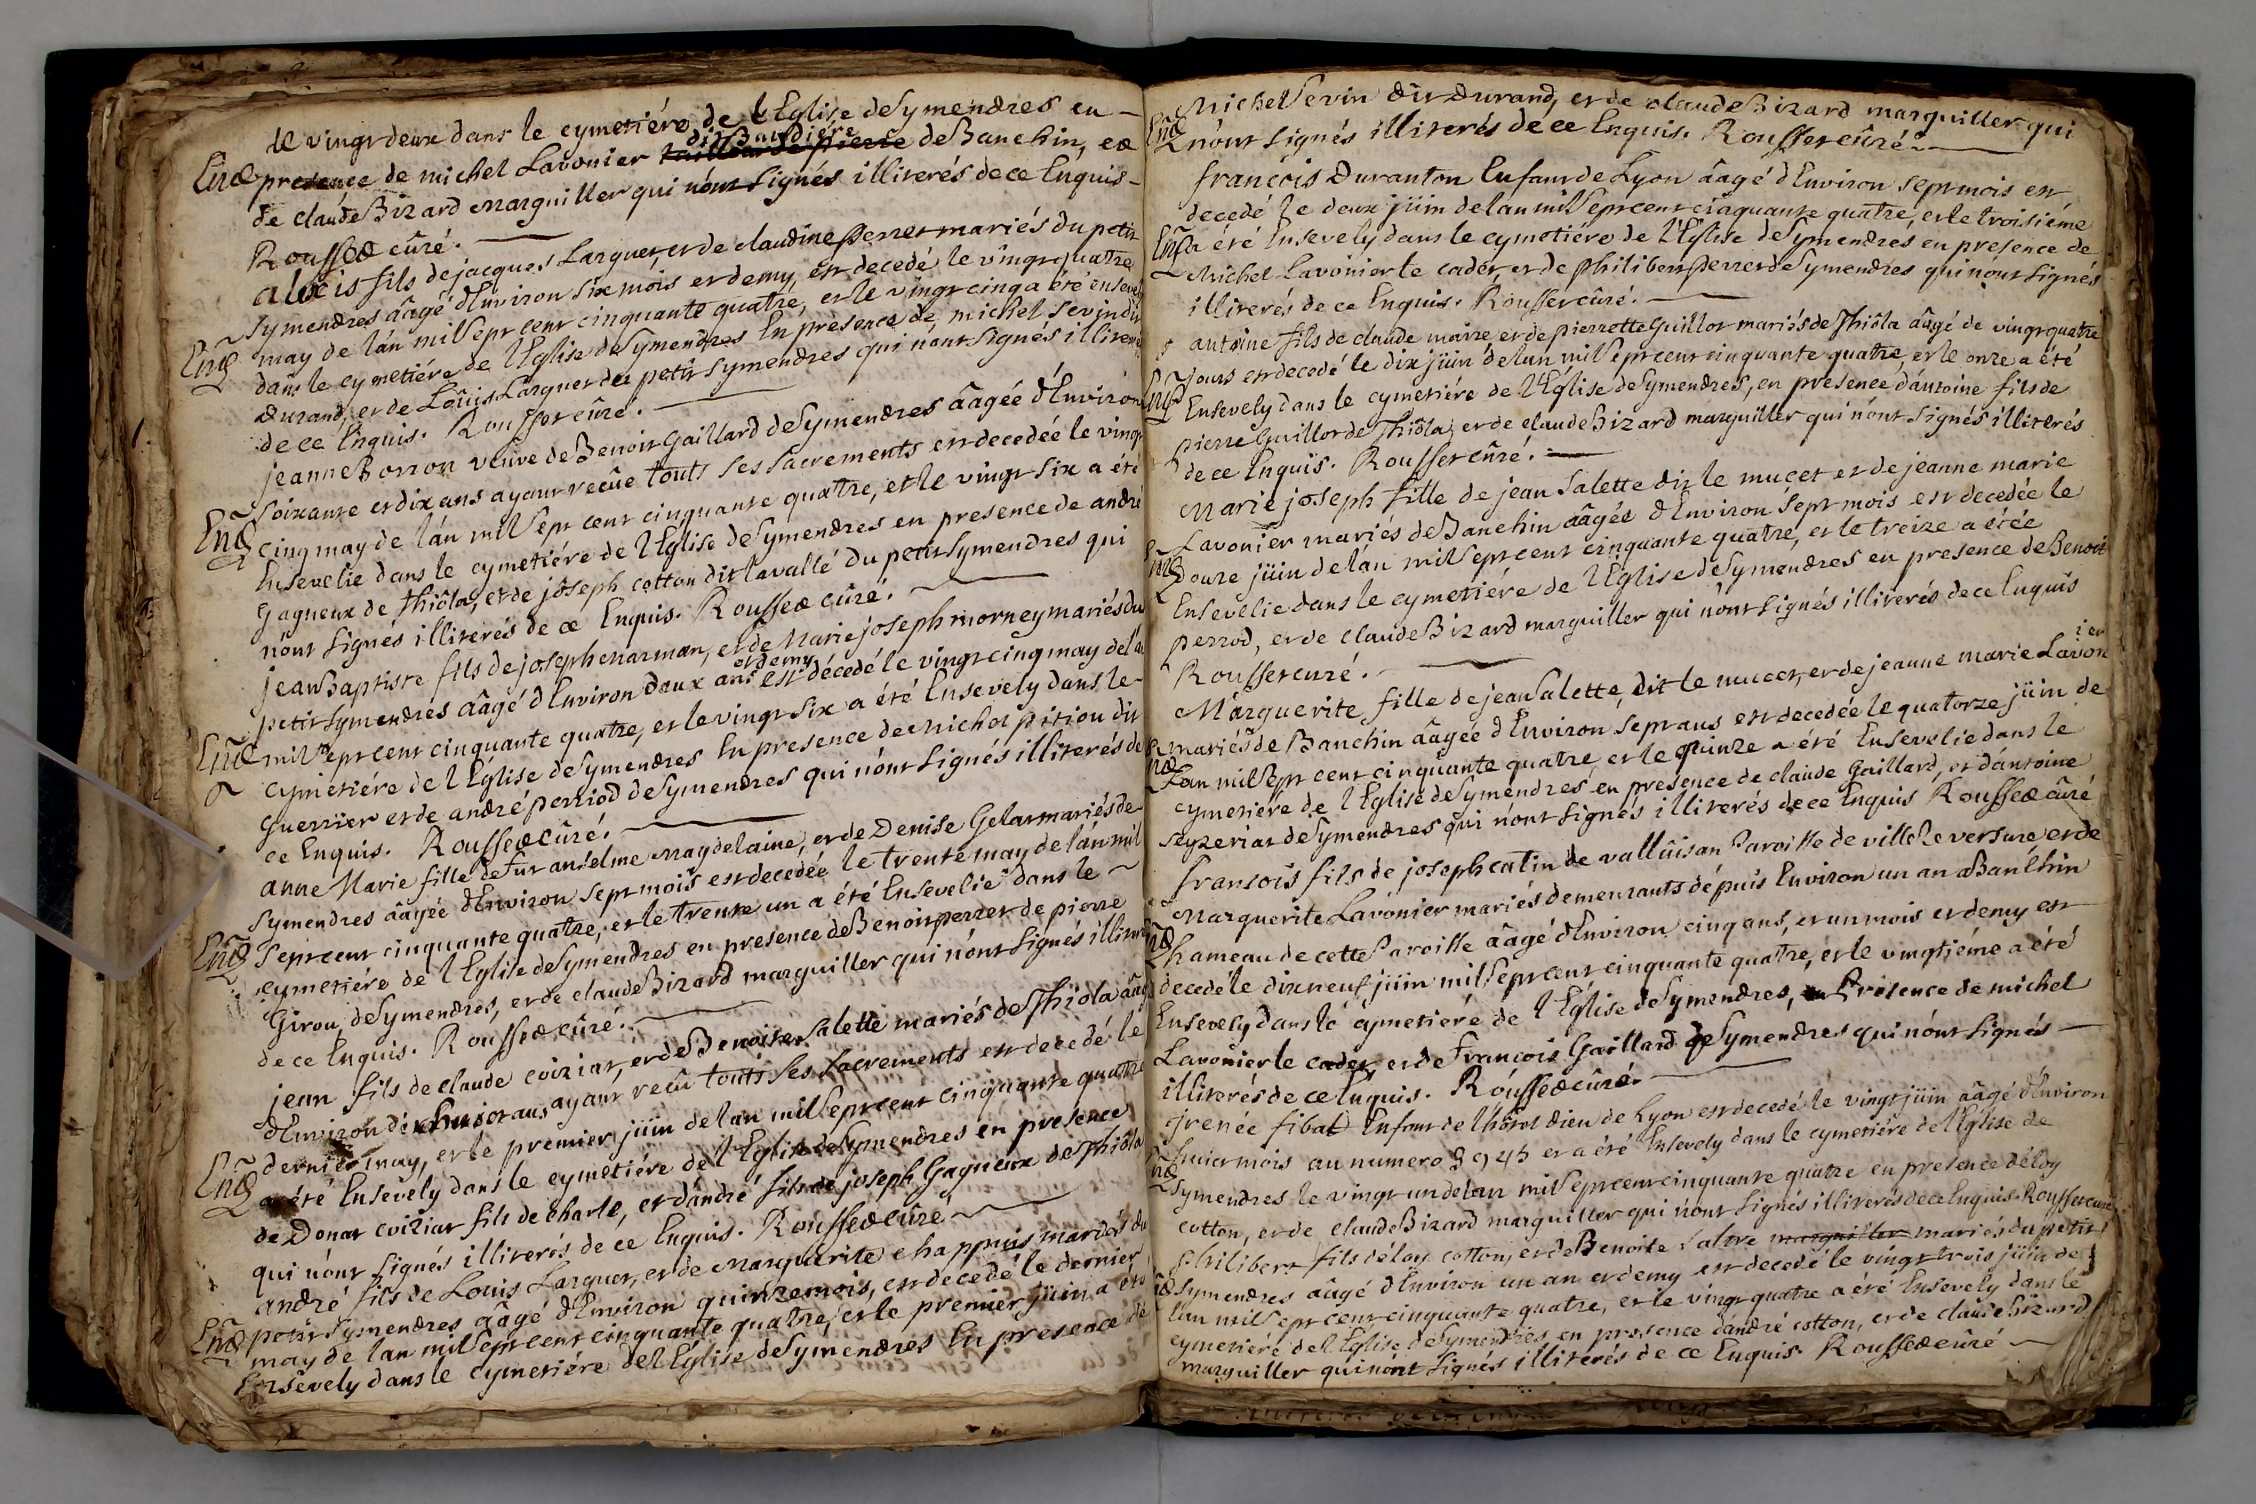 le vingt deux dans le cymetiére de l'Eglise de Symendres en
presence de michel Lavonier tailleur de pierre dit Baudiere de Banchin, et
Ene
de claude Bizard marguiller qui n'ont signés illiterés de ce Enquis
Rousset cûré.
aloeis fils de jacques Larguer, et de claudine perret mariés du petit
Symendres âagé d'Environ six mois et demy, est decedé le vingt quatre
may de l'an mil sept cent cinquante quatre, et le vingt cinq a été ensevely
Ene
dans le cymetiére de l'Eglise de Symendres En présence de michel Sevin dit
Durand, et de Loüis Larguer du petit Symendres qui n'ont signés illiterés
de ce Enquis. Rousset cûré.
jeanne Borron veuve de Benoit Gaillard de Symendres âagée d'Environ
soixante et dix ans ayant recûe touts ses sacrements est decedée le vingt
Ene
cinq may de l'an mil sept cent cinquante quatre, et le vingt six a été
Ensevelie dans le cymetiére de l'Eglise de Symendres en presence de andré
Gagneux de Thiôla, et de joseph cotton dit lavallé du petit Symendres qui
n'ont signés illiterés de ce Enquis. Rousset cûré.
jean Baptiste fils de joseph marman, et de Marie joseph morney mariés du
petit Symendres âagé d'Environ deux ans et demy est décedé le vingt cinq may de l'an
Ene
mil sept cent cinquante quatre, et le vingt six a été Ensevely dans le
cymetiére de l'Eglise de Symendres En presence de Michel pitiou dit
Guerrier et de andré perriod de Symendres qui n'ont signés illiterés de
ce Enquis. Rousset cûré.
anne Marie fille de fut anselme maydelaine, et de Denise Gelas mariés de
Symendres âagée d'Environ sept mois est decedée le trente may de l'an mil
Ene
sept cent cinquante quatre, et le trente un a été Ensevelie dans le
cymetiére de l'Eglise de Symendres en presence de Benoit perret de pierre
Girou, de Symendres, et de claude Bizard marguiller qui n'ont signés illiterés
de ce Enquis. Rousset cûré.
jean fils de claude coiziat, et de Benoiste Salette mariés de Thiola âagé
d'Environ dix huit ans, ayant recû touts ses sacrements est decedé le
dernier may, et le premier jüin de lan mil sept cent cinquante quatre
Ene
a été Ensevely dans le cymetiére de l'Eglise de Symendres en presence
de Donat coiziat fils de charle, et d'andré fils de joseph Gagneux de Thiôla
qui n'ont signés illiterés de ce Enquis. Rousset cûré
andré fils de Louis Larguer, et de marguerite chappuis mariés du
petit Symendres âagé d'Environ quinze mois, est decedé le dernier
Ene
may de lan mil sept cent cinquante quatre, et le premier jüin a été
Ensevely dans le cymetiére de l'Eglise de Symendres En presence de
Michel Sevin dit Durand, et de claude Bizard marguiller qui
Ene
n'ont signés illiterés de ce Enquis. Rousset cûré
françois Duranton Enfant de Lyon âagé d'Environ sept mois est
decedé le deux jüin de lan mil sept cent cinquante quatre, et le troisiéme
Ene
a été Ensevely dans le cymetiére de l'Eglise de Symendres en presence de
Michel Lavonier le cadet, et de philibert perret de Symendres qui n'ont signés
illiterés de ce Enquis. Rousset cûré.
antoine fils de claude maire et de pierrette Guillot mariés de Thiôla âagé de vingt quatre
jours est decedé le dix jüin de lan mil sept cent cinquante quatre, et le onze a été
Ene
Ensevely dans le cymetiére de l'Eglise de Symendres, en presence d'antoine fils de
pierre Guillot de Thiôla, et de claude Bizard marguiller qui n'ont signés illiterés
de ce Enquis. Rousset cûré.
Marie joseph fille de jean Salette dit le mucet et de jeanne marie
Lavonier mariés de Banchin âagée d'Environ sept mois est decedée le
Ene
douze jüin de l'an mil sept cent cinquante quatre, et le treize a étée
Ensevelie dans le cymetiére de l'Eglise de Symendres en presence de Benoit
perrod, et de claude Bizard marguiller qui n'ont signés illiterés de ce Enquis
Rousset curé.
Marguerite fille de jean Salette, dit le mucet, et de jeanne marie Lavonier
mariés de Banchin âagée d'Environ sept ans est decedée le quatorze jüin de
Ene
l'an mil sept cent cinquante quatre, et le quinze a été Ensevelie dans le
cymetiére de l'Eglise de Symendres en presence de claude Gaillard, et d'antoine
seyzeriat de Symendres qui n'ont signés illiterés de ce Enquis Rousset cûré
fransois fils de joseph catin de valluisan Paroisse de villeversure et de
Marguerite Lavonier mariés demeurants dépuis Environ un an a Banchin
Ene
hameau de cette Paroisse âagé d'Environ cinq ans, et un mois et demy est
decedé le dixneuf jüin mil sept cent cinquante quatre, et le vingtiéme a été
Ensevely dans le cymetiéré de l'Eglise de Symendres, en Présence de michel
Lavonier le cadet, et de François Gaillard de Symendres qui n'ont signés
illiterés de ce Enquis. Rousset cûré.
jrenée fibat Enfant de l'hôtel dieu de Lyon est decedé le vingt jüin âagé d'Environ
huict mois au numero 3945 et a été Ensevely dans le cymetiére de l'Eglise de
Ene
Symendres le vingt un de lan mil sept cent cinquante quatre en presence déloy
cotton, et de claude Bizard marguiller qui n'ont signés illiterés de ce Enquis. Rousset curé
philibert fils déloy cotton, et de Benoite Salive marguiller mariés du petit
Ene
Symendres âagé d'Environ un an et demy est decedé le vingt trois jüin de
lan mil sept cent cinquante quatre, et le vingt quatre a été Ensevely dans le
cymetiére de l'Eglise de Symendres en presence dandré cotton, et de claude Bizard
marguiller qui n'ont signés illiterés de ce Enquis. Rousset cûré